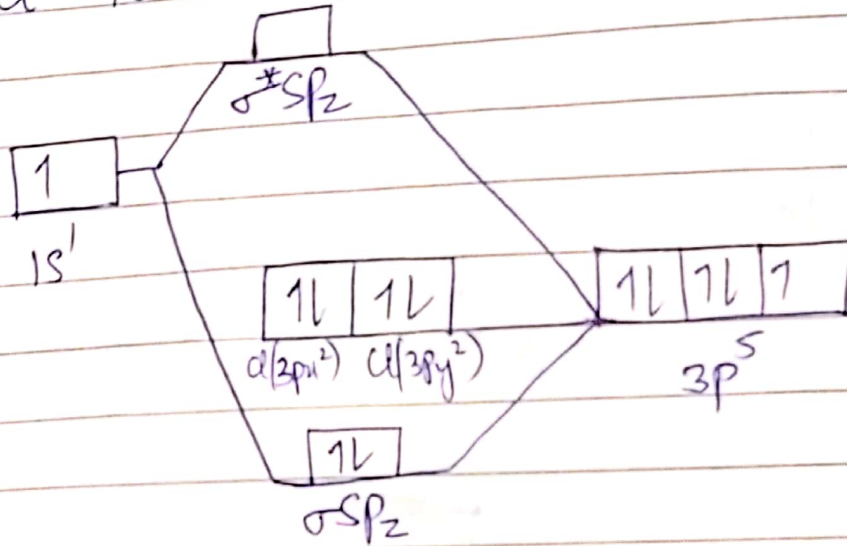 σ*sp₂
1
1s¹
1l 1l
Cl(3px²) Cl(3py²)
1l 1l 1
3p⁵
1l
σsp₂